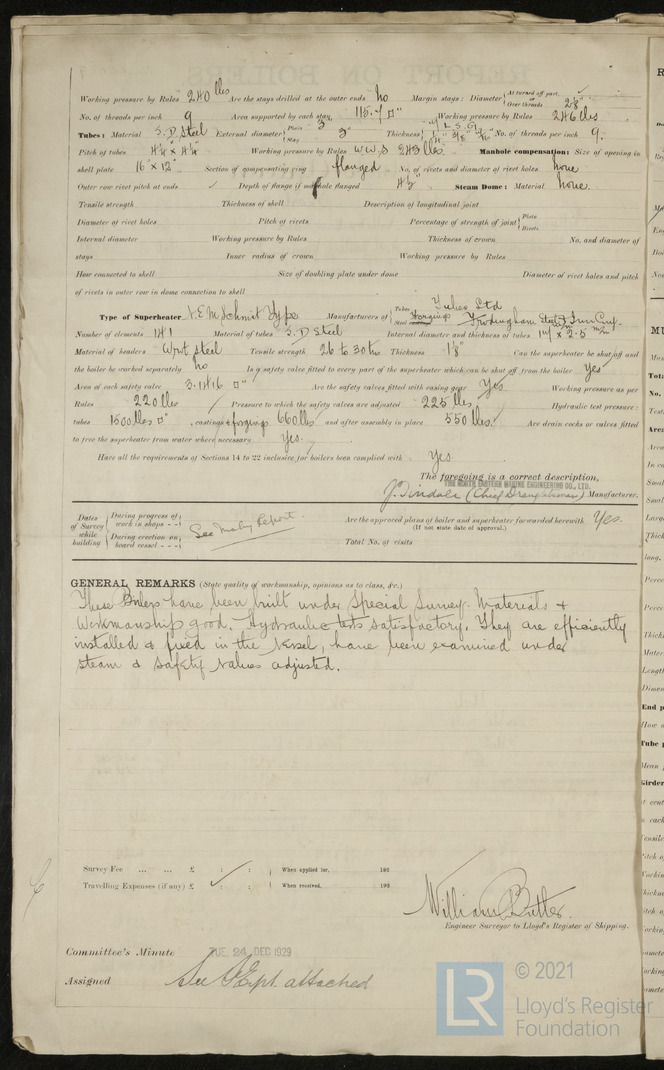 Working pressure by Rules 240 lbs Are the stays drilled at the outer ends No Margin stays: Diameter { At turned off part, or Over threads 2⅝"
No. of threads per inch 9 Area supported by each stay 115.7 □" Working pressure by Rules 246 lbs
Tubes: Material S.D. Steel External diameter { Plain 3" Stay 3" Thickness { L.S.G. 5/16" No. of threads per inch 9.
Pitch of tubes 4¼" x 4¼" Working pressure by Rules W.W.S 243 lbs Manhole compensation: Size of opening in
shell plate 16" x 12" Section of compensating ring flanged No. of rivets and diameter of rivet holes None
Outer row rivet pitch at ends Depth of flange if manhole flanged 4½" Steam Dome: Material None.
Tensile strength Thickness of shell Description of longitudinal joint
Diameter of rivet holes Pitch of rivets Percentage of strength of joint { Plate Rivets
Internal diameter Working pressure by Rules Thickness of crown No. and diameter of
stays Inner radius of crown Working pressure by Rules
How connected to shell Size of doubling plate under dome Diameter of rivet holes and pitch
of rivets in outer row in dome connection to shell
Type of Superheater N.E.M. Schmidt Type Manufacturers of { Tubes Tubes Ltd Steel forgings Frodingham Steel & Iron Co.
Number of elements 141 Material of tubes S.D Steel Internal diameter and thickness of tubes 17 m/m x 2.5 m/m
Material of headers Wrot Steel Tensile strength 26 to 30 tons Thickness 1⅛" Can the superheater be shut off and
the boiler be worked separately No Is a safety valve fitted to every part of the superheater which can be shut off from the boiler Yes
Area of each safety valve 3.1416 □" Are the safety valves fitted with easing gear Yes Working pressure as per
Rules 220 lbs Pressure to which the safety valves are adjusted 225 lbs Hydraulic test pressure:
tubes 1500 lbs □", castings & forgings 660 lbs and after assembly in place 550 lbs. Are drain cocks or valves fitted
to free the superheater from water where necessary Yes.
Have all the requirements of Sections 14 to 22 inclusive for boilers been complied with Yes
The foregoing is a correct description,
THE NORTH EASTERN MARINE ENGINEERING CO., LTD.
J. Tindale (Chief Draughtsman) Manufacturer.
Dates of Survey while building { During progress of work in shops - - During erection on board vessel - - - See Mchy Report. Are the approved plans of boiler and superheater forwarded herewith Yes.
(If not state date of approval.)
Total No. of visits
GENERAL REMARKS (State quality of workmanship, opinions as to class, &c.)
These Boilers have been built under Special Survey. Materials &
Workmanship good. Hydraulic tests satisfactory. They are efficiently
installed & fixed in the Vessel, have been examined under
steam & Safety Valves adjusted.
Survey Fee ... ... £ : : When applied for, 192
Travelling Expenses (if any) £ : : When received, 192
William Butler.
Engineer Surveyor to Lloyd's Register of Shipping.
Committee's Minute TUE. 24 DEC 1929
Assigned See F.E. Rpt. attached
LR © 2021
Lloyd's Register
Foundation